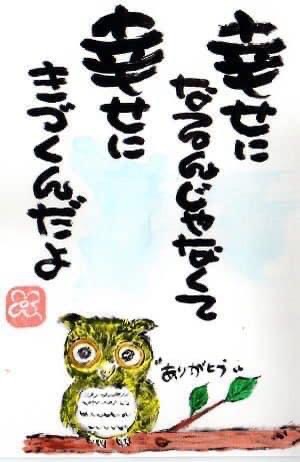 幸せに
なるんじゃなくて
幸せに
きづくんだよ
"ありがとう"